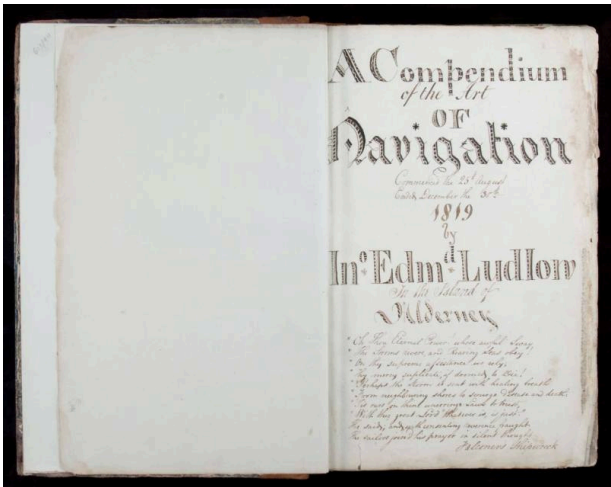 A Compendium
of the Art
OF
Navigation
Commenced the 23d August
Ended December the 30th
1819
by
Jno Edmd Ludlow
In the Island of
Alderney
"Oh Thou Eternal Power! whose awful Sway,
"The Storms revere, and Roaring Seas obey!
"On thy supreme assistance we rely;
"Thy mercy supplicate, if doom'd to Die!
"Perhaps the Storm is sent with healing breath
"From neighbouring shores to scourge disease and death!
"'Tis ours on thine unerring Laws to trust,
"With thee great Lord whatever is, is just!"
He said, and with consenting reverence fraught
The sailors join'd his prayer in silent thought
Falconers Shipwreck